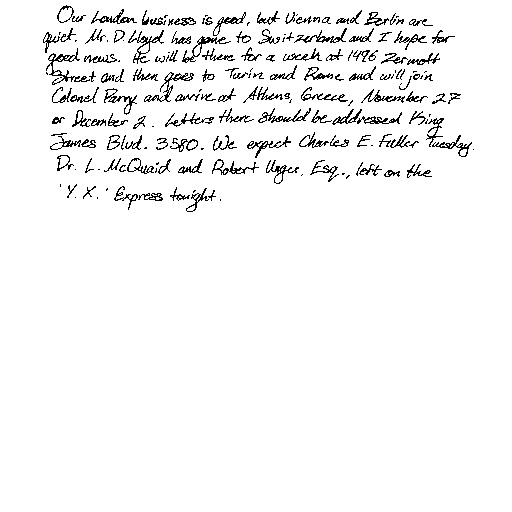 Our London business is good, but Vienna and Berlin are
quiet. Mr. D. Lloyd has gone to Switzerland and I hope for
good news. He will be there for a week at 1496 Zermott
Street and then goes to Turin and Rome and will join
Colonel Parry and arrive at Athens, Greece, November 27
or December 2. Letters there should be addressed King
James Blvd. 3580. We expect Charles E. Fuller Tuesday.
Dr. L. McQuaid and Robert Unger, Esq., left on the
'Y. X.' Express tonight.